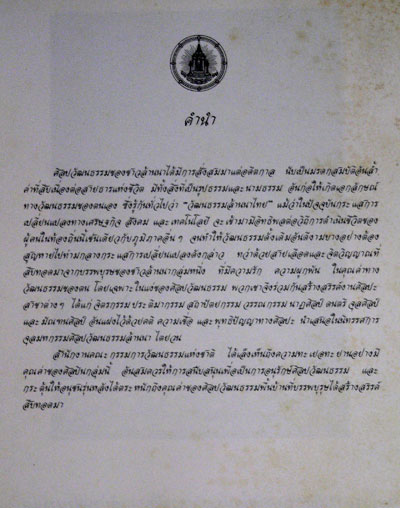 คำนำ
ศิลปวัฒนธรรมของชาวล้านนาได้มีการสั่งสมมาแต่อดีตกาล นับเป็นมรดกสมบัติอันล้ำ
ค่าที่สืบเนื่องต่อสายธารแห่งชีวิต มีทั้งสิ่งที่เป็นรูปธรรมและนามธรรม อันก่อให้เกิดเอกลักษณ์
ทางวัฒนธรรมของตนเอง ซึ่งรู้กันทั่วไปว่า "วัฒนธรรมล้านนาไทย" แม้ว่าในปัจจุบันกระแสการ
เปลี่ยนแปลงทางเศรษฐกิจ สังคม และเทคโนโลยี จะเข้ามามีอิทธิพลต่อวิถีการดำเนินชีวิตของ
ผู้คนในท้องถิ่นนี้เช่นเดียวกับภูมิภาคอื่นๆ จนทำให้วัฒนธรรมดั้งเดิมอันดีงามบางอย่างต้อง
สูญหายไปท่ามกลางกระแสการเปลี่ยนแปลงดังกล่าว ทว่าด้วยสายเลือดและจิตวิญญาณที่
สืบทอดมาจากบรรพบุรุษของชาวล้านนากลุ่มหนึ่ง ที่มีความรัก ความผูกพัน ในคุณค่าทาง
วัฒนธรรมของตน โดยเฉพาะในแง่ของศิลปวัฒนธรรม พวกเขาจึงร่วมกันสร้างสรรค์งานศิลปะ
สาขาต่างๆ ได้แก่ จิตรกรรม ประติมากรรม สถาปัตยกรรม วรรณกรรม นาฏศิลป์ ดนตรี จุลศิลป์
และมัณฑนศิลป์ อันแฝงไว้ด้วยคติ ความเชื่อ และพุทธิปัญญาทางศิลปะ นำเสนอในนิทรรศการ
อุดมหกรรมศิลปวัฒนธรรมล้านนา โดยวน
สำนักงานคณะกรรมการวัฒนธรรมแห่งชาติ ได้เล็งเห็นถึงความทะเยอทะยานอย่างมี
คุณค่าของศิลปินกลุ่มนี้ อันสมควรให้การสนับสนุนเพื่อเป็นการอนุรักษ์ศิลปวัฒนธรรม และ
กระตุ้นให้อนุชนรุ่นหลังได้ตระหนักถึงคุณค่าของศิลปวัฒนธรรมพื้นบ้านที่บรรพบุรุษได้สร้างสรรค์
สืบทอดมา